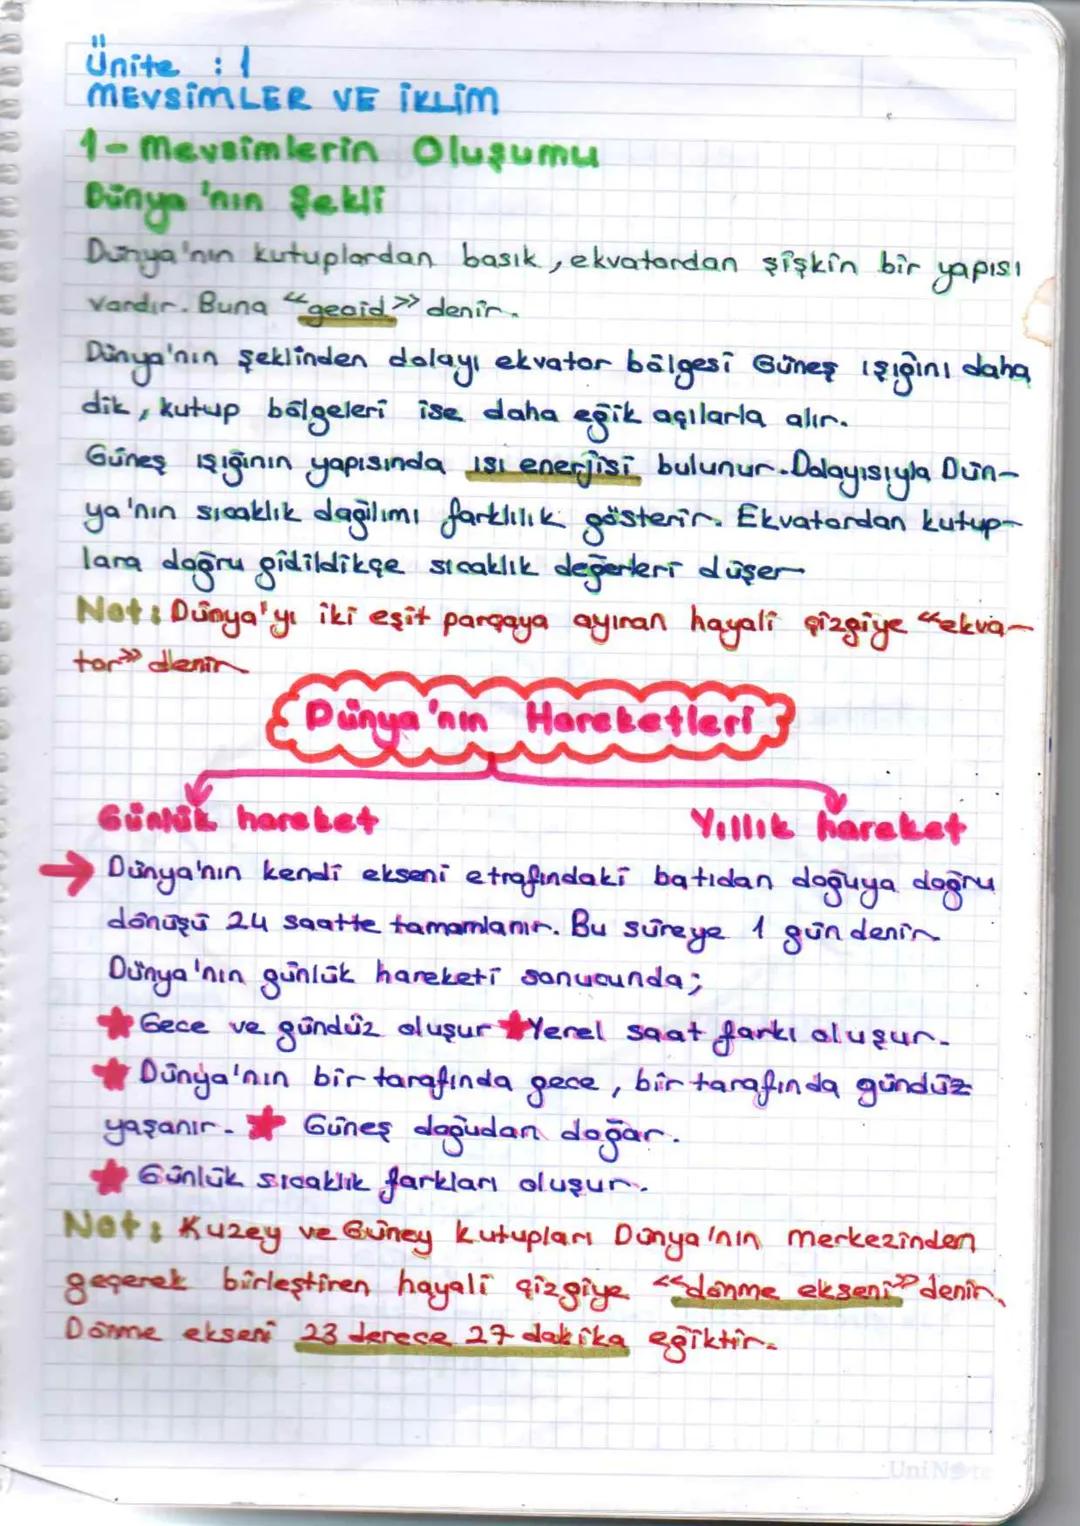 Ünite : 1
MEVSİMLER VE İKLİM
1- Mevsimlerin Oluşumu
Dünya'nın Şekli
Dünya'nın kutuplardan basık, ekvatordan şişkin bir yapısı
vardır. Buna “geoid” denir.
Dünya'nın şeklinden dolayı ekvator bölgesi Güneş ışığını daha
dik, kutup bölgeleri ise daha eğik açılarla alır.
Güneş ışığının yapısında ısı enerjisi bulunur. Dolayısıyla Dün-
ya'nın sıcaklık dağılımı farklılık gösterir. Ekvatordan kutup-
lara doğru gidildikçe sıcaklık değerleri düşer
Not: Dünya'yı iki eşit parçaya ayıran hayali çizgiye “ekva-
tor” denir
Dünya'nın Hareketleri
Günlük hareket Yıllık hareket
→ Dünya'nın kendi ekseni etrafındaki batıdan doğuya doğru
dönüşü 24 saatte tamamlanır. Bu süreye 1 gün denir
Dünya'nın günlük hareketi sonucunda;
★ Gece ve gündüz oluşur ★ Yerel saat farkı oluşur.
★ Dünya'nın bir tarafında gece, bir tarafında gündüz
yaşanır. ★ Güneş doğudan doğar.
★ Günlük sıcaklık farkları oluşur.
Not: Kuzey ve Güney kutupları Dünya'nın merkezinden
geçerek birleştiren hayali çizgiye “dönme ekseni” denir.
Dönme ekseni 23 derece 27 dakika eğiktir.
UniNote